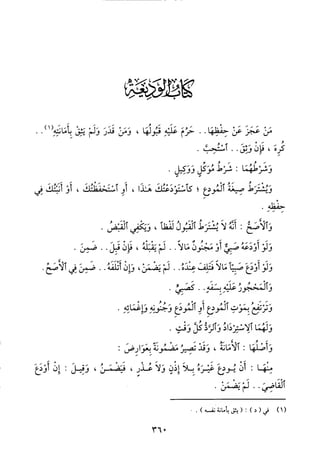 كتاب الوديعة
مَنْ عَجَزَ عَنْ حِفْظِهَا.. حَرُمَ عَلَيْهِ قَبُولُهَا ، وَمَنْ قَدَرَ وَلَمْ يَثِقْ بِأَمَانَتِهِ(١)..
كُرِهَ ، فَإِنْ وَثِقَ.. اسْتُحِبَّ .
وَشَرْطُهُمَا : شَرْطُ مُوَكِّلٍ وَوَكِيلٍ .
وَيُشْتَرَطُ صِيغَةُ الْمُودِعِ ؛ كَاسْتَوْدَعْتُكَ هَذَا ، أَوِ اسْتَحْفَظْتُكَ ، أَوْ أَنَبْتُكَ فِي
حِفْظِهِ .
وَالأَصَحُّ : أَنَّهُ لاَ يُشْتَرَطُ الْقَبُولُ لَفْظاً ، وَيَكْفِي الْقَبْضُ .
وَلَوْ أَوْدَعَهُ صَبِيٌّ أَوْ مَجْنُونٌ مَالاً.. لَمْ يَقْبَلْهُ ، فَإِنْ قَبِلَ.. ضَمِنَ .
وَلَوْ أَوْدَعَ صَبِيّاً مَالاً فَتَلِفَ عِنْدَهُ.. لَمْ يَضْمَنْ ، وَإِنْ أَتْلَفَهُ.. ضَمِنَ فِي الأَصَحِّ .
وَالْمَحْجُورُ عَلَيْهِ بِسَفَهٍ.. كَصَبِيٍّ .
وَتَرْتَفِعُ بِمَوْتِ الْمُودِعِ أَوِ الْمُودَعِ وَجُنُونِهِ وَإِغْمَائِهِ .
وَلَهُمَا الاِسْتِرْدَادُ وَالرَّدُّ كُلَّ وَقْتٍ .
وَأَصْلُهَا : الأَمَانَةُ ، وَقَدْ تَصِيرُ مَضْمُونَةً بِعَوَارِضَ :
مِنْهَا : أَنْ يُودِعَ غَيْرَهُ بِلاَ إِذْنٍ وَلاَ عُذْرٍ ، فَيَضْمَنُ ، وَقِيلَ : إِنْ أَوْدَعَ
الْقَاضِيَ.. لَمْ يَضْمَنْ .
(١) في (د) : ( يثق بأمانة نفسه ) .
٣٦٠